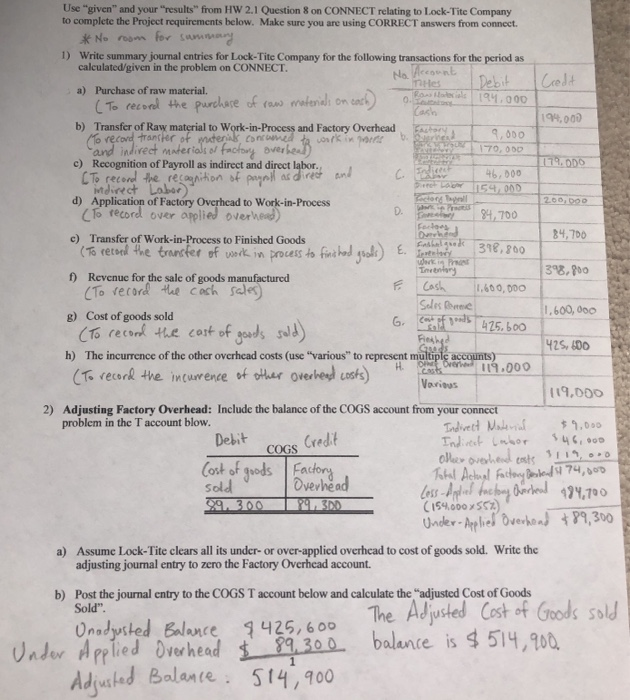 Use "given" and your "results" from HW 2.1 Question 8 on CONNECT relating to Lock-Tite Company
to complete the Project requirements below. Make sure you are using CORRECT answers from connect.
* No room for summary
1) Write summary journal entries for Lock-Tite Company for the following transactions for the period as
calculated/given in the problem on CONNECT.
No Account Titles Debit Credit
a) Purchase of raw material.
(To record the purchase of raw materials on cash)
a. Raw Materials Inventory 194,000
Cash 194,000
b) Transfer of Raw material to Work-in-Process and Factory Overhead
(To record transfer of materials consumed to work in process
and indirect materials of factory overhead)
b. Factory Overhead 9,000
170,000
179,000
c) Recognition of Payroll as indirect and direct labor.
(To record the recognition of payroll as direct and
indirect Labor)
C. Indirect Labor 46,000
Direct Labor 154,000
Factory Payroll 200,000
d) Application of Factory Overhead to Work-in-Process
(To record over applied overhead)
D. Work in Process Inventory 84,700
Factory Overhead 84,700
e) Transfer of Work-in-Process to Finished Goods
(To record the transfer of work in process to finished goods)
E. Finished goods Inventory 398,800
Work in Process Inventory 398,800
f) Revenue for the sale of goods manufactured
(To record the cash sales)
F. Cash 1,600,000
Sales Revenue 1,600,000
g) Cost of goods sold
(To record the cost of goods sold)
G. Cost of goods sold 425,600
Finished Goods 425,600
h) The incurrence of the other overhead costs (use "various" to represent multiple accounts)
(To record the incurrence of other overhead costs)
H. Other Overhead costs 119,000
Various 119,000
2) Adjusting Factory Overhead: Include the balance of the COGS account from your connect
problem in the T account blow.
Indirect Material $9,000
Indirect Labor $46,000
Other overhead costs $119,000
Total Actual Factory 174,000
Less - Applied Factory Overhead 184,700
(154,000 x 55%)
Under-Applied Overhead +89,300
Debit COGS Credit
Cost of goods sold Factory Overhead
89,300 89,300
a) Assume Lock-Tite clears all its under- or over-applied overhead to cost of goods sold. Write the
adjusting journal entry to zero the Factory Overhead account.
b) Post the journal entry to the COGS T account below and calculate the "adjusted Cost of Goods
Sold".
Unadjusted Balance $425,600
Under Applied Overhead $ 89,300
1
Adjusted Balance: 514,900
The Adjusted Cost of Goods sold
balance is $ 514,900.